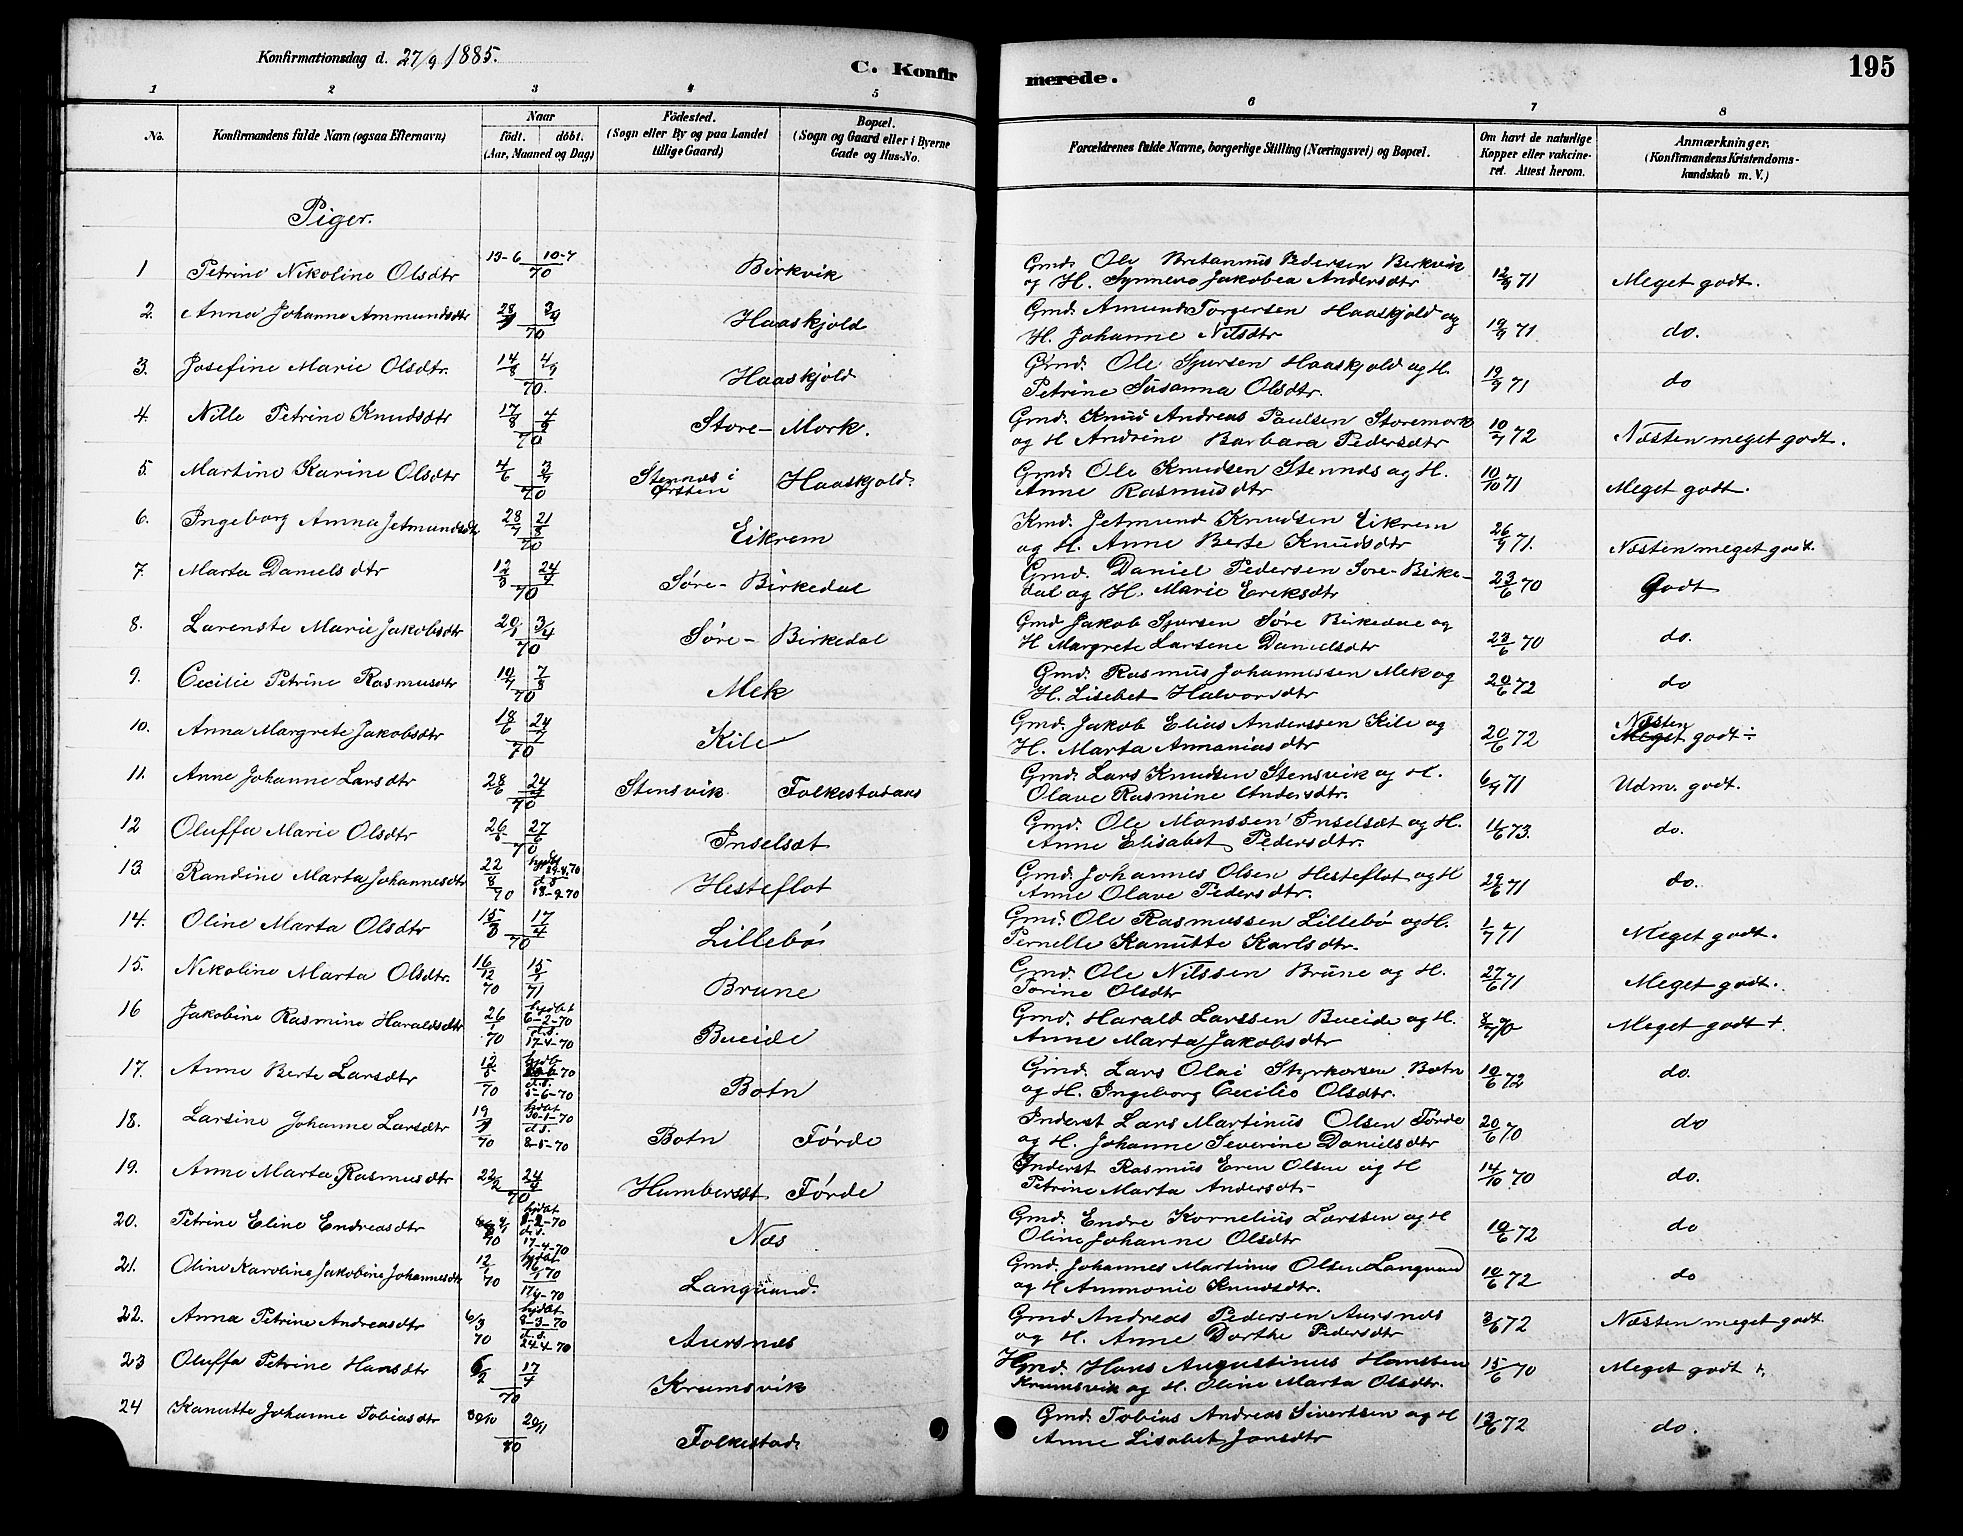 Konfirmationsdag d. 27/9 1885.
C. Konfirmerede.
195
1 2 3 4 5 6 7 8
No.
Konfirmandens fulde Navn (ogsaa Efternavn)
Naar
födt. döbt.
(Aar, Maaned og Dag)
Födested.
(Sogn eller By og paa Landet
tillige Gaard)
Bopæl.
(Sogn og Gaard eller i Byerne
Gade og Hus-No.
Forældrenes fulde Navne, borgerlige Stilling (Næringsvei) og Bopæl.
Om havt de naturlige
Kopper eller vakcine-
ret. Attest herom.
Anmærkninger.
(Konfirmandens Kristendoms-
kundskab m. V.)
Piger.
1 Petrine Nikoline Olsdtr 13-6 10-7 70 Birkvik Gmd. Ole Britannus Pedersen Birkvik 12/9 71 Meget godt.
og H. Synneva Jakobea Andersdtr
2. Anna Johanne Ammundsdtr 70 Haaskjold Gmd. Amund Torgersen Haaskjold og 19/9 71 do.
H. Johanne Nilsdtr
3. Josefine Marie Olsdtr. 14/8 4/9 70. Haaskjold Gmd. Ole Sjursen Haaskjold og H. 19/9 71 do
Petrine Susanna Olsdtr.
4. Nille Petrine Knudsdtr 17/8 70 Store-Mork. Gmd. Knud Andreas Paulsen Storemork 10/7 72 Næsten meget godt.
og H Andrine Barbara Pedersdtr
5. Martine Karine Olsdtr 4/6 3/7 70 Stennes i Ørsten Haaskjold. Gmd. Ole Knudsen Stennes og H. 10/10 71 Meget godt.
Anne Rasmusdtr
6. Ingeborg Anna Jetmundsdtr 28/7 21/8 70 Eikrem Kmd. Jetmund Knudsen Eikrem 26/9 71. Næsten meget godt.
og H. Anne Berte Knudsdtr
7. Marta Danielsdtr 12/3 24/4 70 Søre-Birkedal Gmd. Daniel Pedersen Søre-Birke- 23/6 70 Godt
dal og H. Marie Eriksdtr
8. Larenste Marie Jakobsdtr 20/1 3/4 70 Søre-Birkedal Gmd Jakob Sjursen Søre Birkedal og 23/6 70 do.
H Margrete Larsene Danielsdtr
9. Cecilie Petrine Rasmusdtr 10/7 7/8 70 Mek Gmd. Rasmus Johannessen Mek og 20/6 72 do
H. Lisebet Halvorsdtr
10. Anna Margrete Jakobsdtr 18/6 24/7 70 Kile Gmd. Jakob Elias Anderssen Kile og 20/6 72 Næsten Meget godt ÷
H. Marta Annaniasdtr
11. Anne Johanne Larsdtr 28/6 70 Stensvik Folkestadaas Gmd. Lars Knudsen Stensvik og H. 6/7 71 Udm. godt.
Olave Rasmine Andersdtr.
12 Oluffa Marie Olsdtr 26/5 27/6 70 Inselsæt Gmd. Ole Monssen Inselsæt og H. 11/6 73. do.
Anne Elisabet Pedersdtr.
13. Randine Marta Johannesdtr 22/8 70 hjdbt 29-8-70 d. s. 18-9-70 Hesteflot Gmd. Johannes Olsen Hesteflot og H 29/6 71 do.
Anne Olave Pedersdtr.
14. Oline Marta Olsdtr 15/3 17/4 70 Lillebø Gmd. Ole Rasmussen Lillebø og H. 1/7 71 Meget godt.
Pernelle Kanutte Karlsdtr.
15. Nikoline Marta Olsdtr. 16/12 70 15/1 71 Brune Gmd. Ole Nilssen Brune og H. 27/6 71 Meget godt.
Torine Olsdtr
16 Jakobine Rasmine Haraldsdtr 26/1 70 hjdbt 6-2-70 d. s. 17-4-70 Bueide Gmd. Harald Larssen Bueide og H. 8/7 70 Meget godt +.
Anne Marta Jakobsdtr
17. Anne Berte Larsdtr 12/5 70 hjdbt d. s. 5-6-70 Botn Gmd. Lars Olai Styrkorsen Botn 10/6 72 do.
og H. Ingeborg Cecilie Olsdtr.
18. Larsine Johanne Larsdtr 19/1 70 hjdbt 30-1-70 d. s. 8-5-70 Botn Førde Inderst Lars Martinus Olsen Førde 20/6 70 do
og H. Johanne Severine Danielsdtr
19. Anne Marta Rasmusdtr 22/2 24/4 70 Humbersæt Førde Inderst Rasmus Even Olsen og H 14/10 70 do.
Petrine Marta Andersdtr
20. Petrine Eline Endreasdtr 70 hjdbt d. s. 17-4-70 Næs Gmd. Endre Kornelius Larssen og H 10/6 72 do
Oline Johanne Olsdtr
21. Oline Karoline Jakobine Johannesdtr 12/1 70 hjdbt 16/1 70 17/4-70 Langvand. Gmd. Johannes Martinus Olsen Langvand 10/6 72 do
og H Ammonie Knudsdtr.
22. Anna Petrine Andreasdtr 6/3 70 hjdbt 8-3-70 d. s. 24-4 70 Aursnes Gmd Andreas Pedersen Aursnes 3/6 72 Næsten meget godt
og H. Anne Dorthe Pedersdtr
23 Oluffa Petrine Hansdtr 6/2 17/4 70 Krumsvik Gmd. Hans Augustinus Hanssen 15/6 70 Meget godt +.
Krumsvik og H. Oline Marta Olsdtr.
24 Kanutte Johanne Tobiasdtr 30/10 20/11 70 Folkestad Gmd. Tobias Andreas Sivertsen og H 13/6 72 do.
Anne Lisabet Jonsdtr